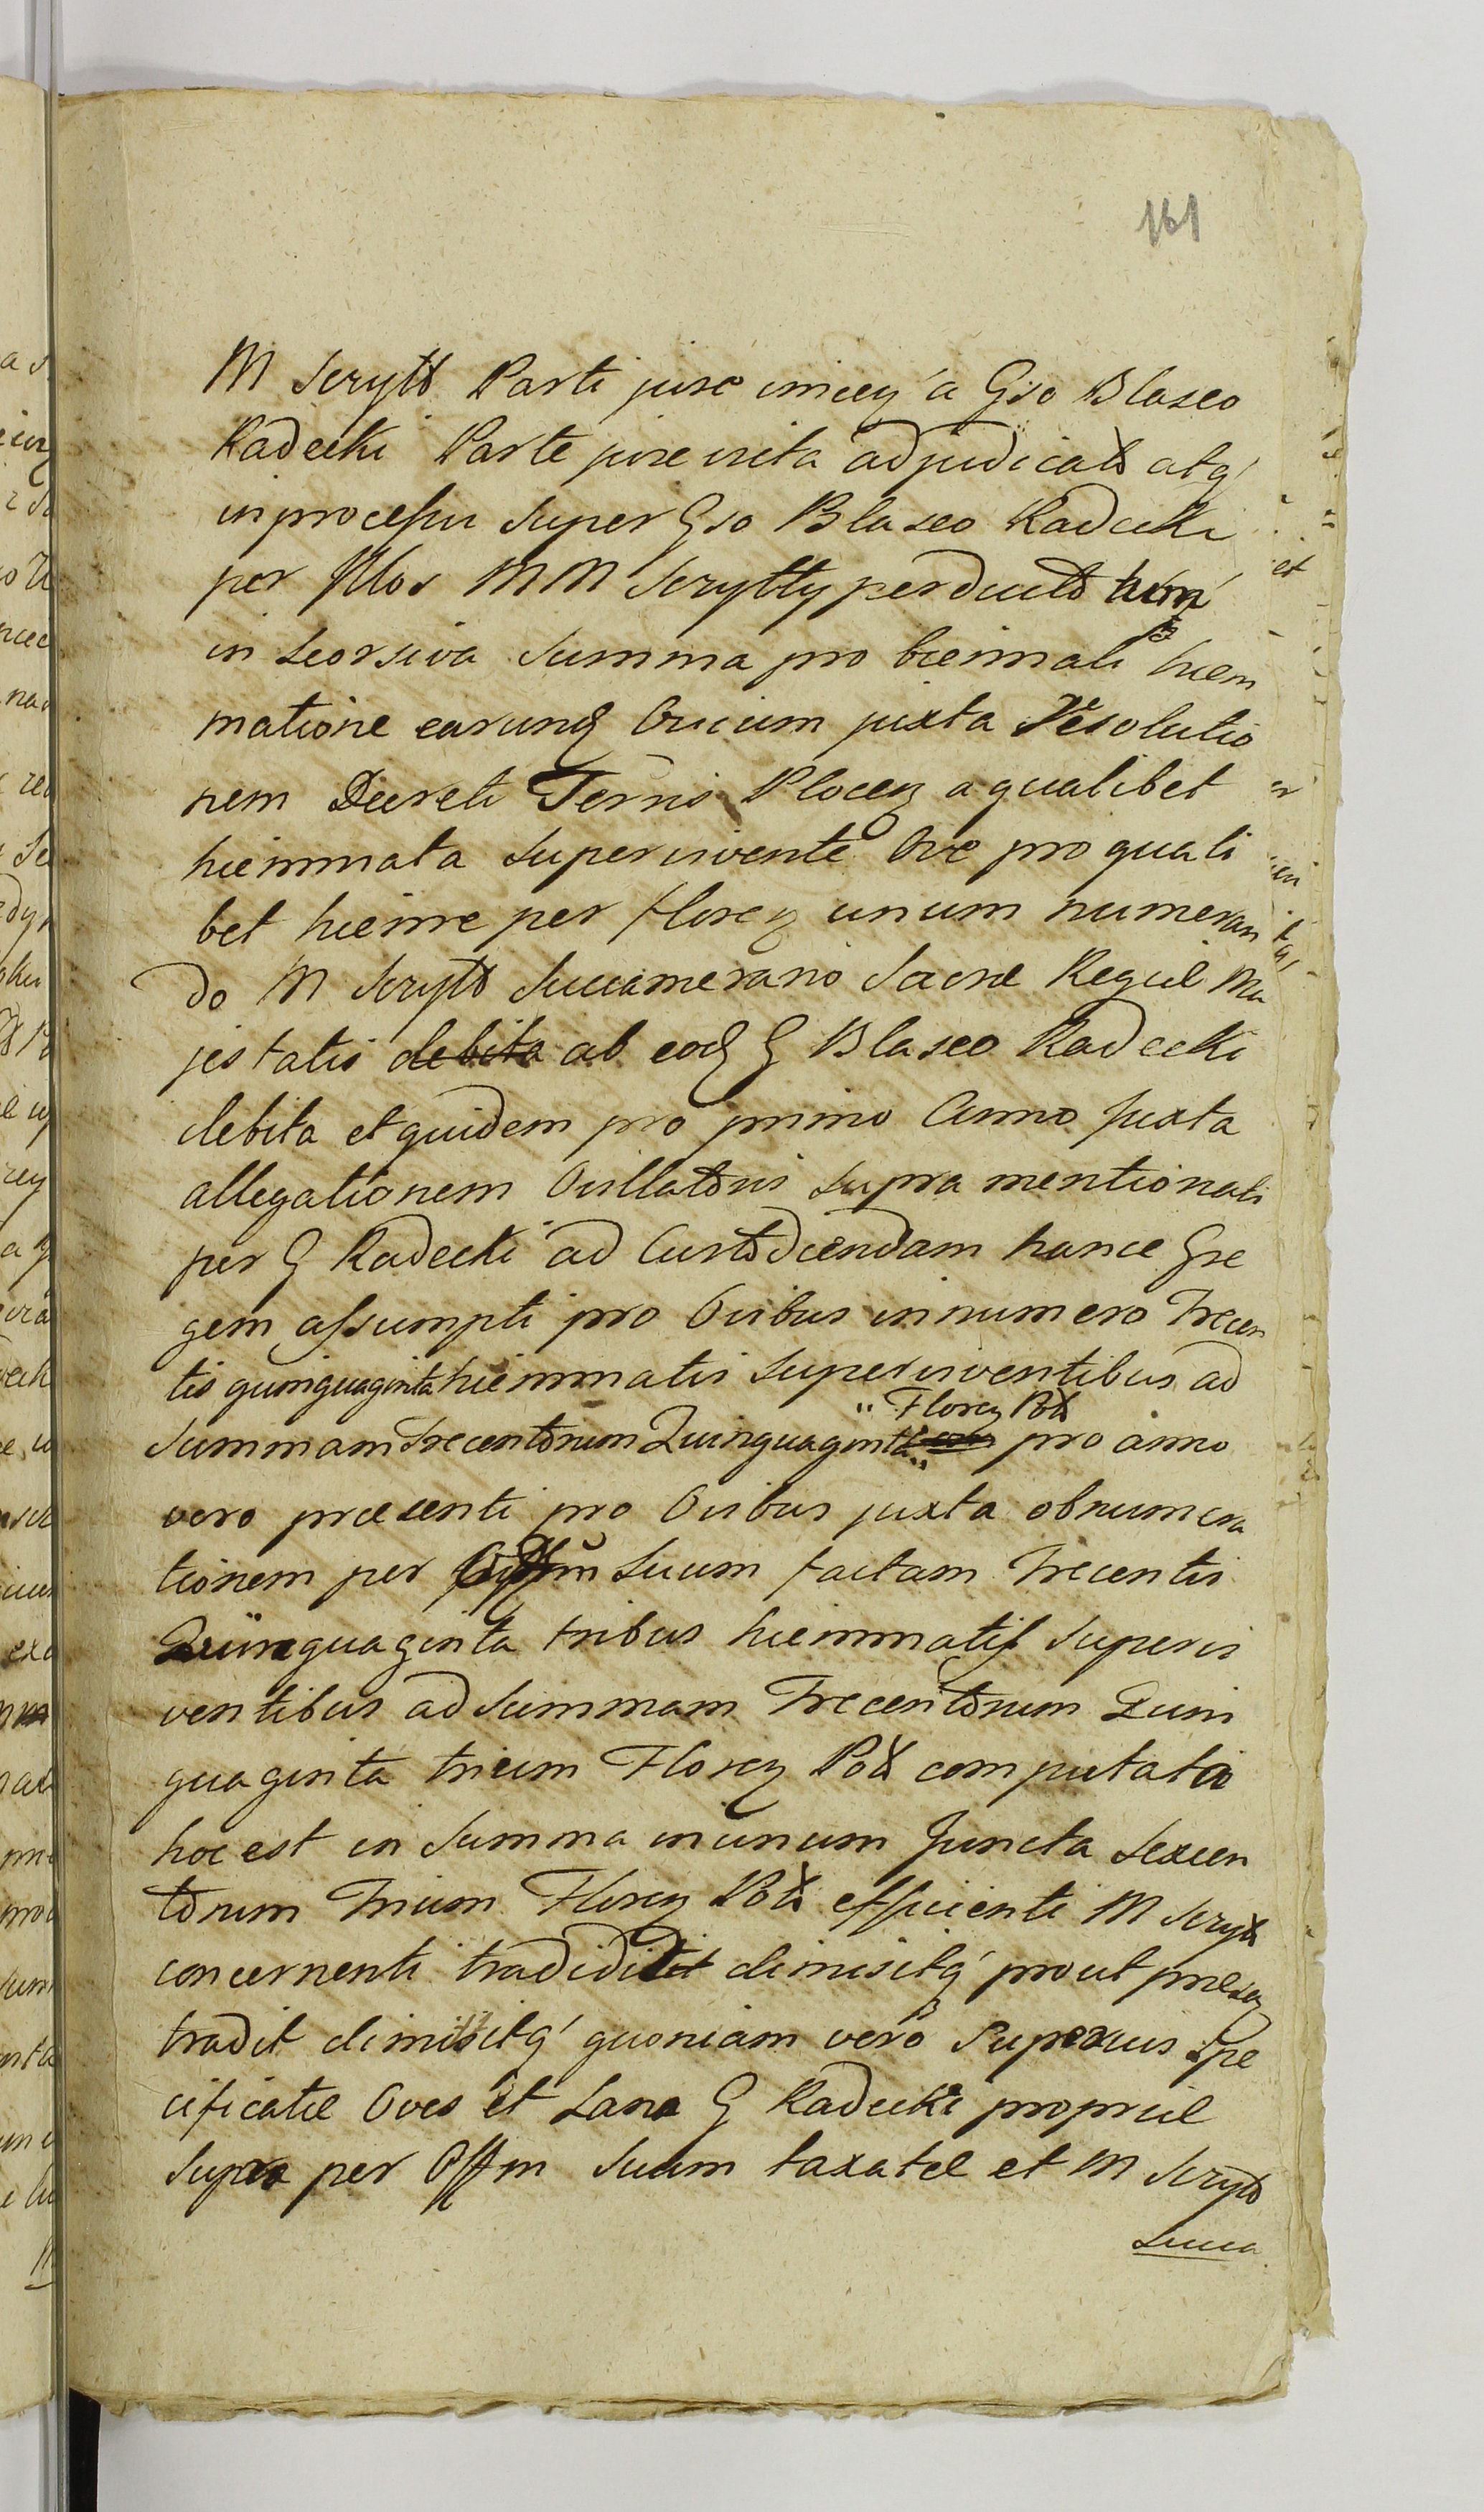 161
M Scrytt Parti jure vincen a Gso Blaseo
Radecki Parte jure victa adjudicatt atq
in processu super Gso Blaseo Radecki
per Illos MM Scrytty perduct
in seorsiva summa pro biennali hiem
matione earundq Ovium juxta resolutio
nem Decreti Terris Plocen a qualibet
hiemmata supervivente Ove pro quali
bet hieme per floren unum numeran
do M Scrytt Succamerario Sacræ Regiæ Ma
jestatis debita ab eodq G Blaseo Radecki
debita et quidem pro primo Anno juxta
allegationem Ovillatoris supra mentionati
per G Radecki ad Custodiendam hance Gre
gem assumpti pro Ovibus in numero Trecen
tis quinquaginta hiemmatis supervinventibus ad
Floren Pol
Summam Trecentorum Quinquaginta pro anno
vero præsenti pro Ovibus juxta obnumera
tionem per Offm suum factam Trecentis
Quinquaginta tribus hiemmatis supervi
ventibus ad summam Trecentorum Quin
quaginta trium Floren Pol computata
hoc est in summa in unum Juncta sexcen
torum Trium Floren Pol efficienti M Scryt
concernenti tradidit dimisitq prout præsen
tradit dimittitq quoniam vero superius spe
cificatæ Oves et Lana G Radecki propriæ
supra per Offm suum taxatæ et M Scrytt
Succa